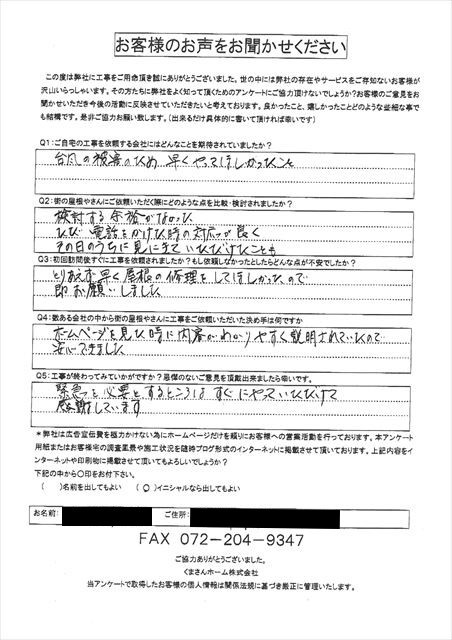 お客様のお声をお聞かせください
この度は弊社に工事をご用命頂き誠にありがとうございました。世の中には弊社の存在やサービスをご存知ないお客様が
沢山いらっしゃいます。その方たちに弊社をよく知って頂くためのアンケートにご協力頂けないでしょうか?お客様のご意見をお
聞かせいただき今後の活動に反映させていただきたいと考えております。良かったこと、嬉しかったことどのような些細な事で
も結構です。是非ご協力お願い致します。(出来るだけ具体的に書いて頂ければ幸いです)
Q1:ご自宅の工事を依頼する会社にはどんなことを期待されていましたか?
台風の被害のため 早くやってほしかったこと
Q2:街の屋根やさんにご依頼いただく際にどのような点を比較・検討されましたか?
検討する余裕がなかった
ただ 電話をかけた時の対応が良く
その日のうちに見にきていただけたことも
Q3:初回訪問後すぐに工事を依頼されましたか?もし依頼しなかったとしたらどんな点が不安でしたか?
とりあえず早く屋根の修理をしてほしかったので
即お願いしました
Q4:数ある会社の中から街の屋根やさんに工事をご依頼いただいた決め手は何ですか
ホームページを見た時に内容がわかりやすく説明されていたので
安心できました
Q5:工事が終わってみていかがですか?忌憚のないご意見を頂戴出来ましたら幸いです。
緊急を必要とするところはすぐにやっていただけて
感謝しています
*弊社は広告宣伝費を極力かけない為にホームページだけを頼りにお客様への営業活動を行っております。本アンケート
用紙またはお客様宅の調査風景や施工状況を随時ブログ形式のインターネットに掲載させて頂いております。上記内容をイ
ンターネットや印刷物に掲載させて頂いてもよろしいでしょうか?
下記の中から○印をお付下さい。
( )名前を出してもよい (○)イニシャルなら出してもよい
お名前: ご住所:
FAX 072-204-9347
ご協力ありがとうございました。
くまさんホーム株式会社
当アンケートで取得したお客様の個人情報は関係法規に基づき厳正に管理いたします。